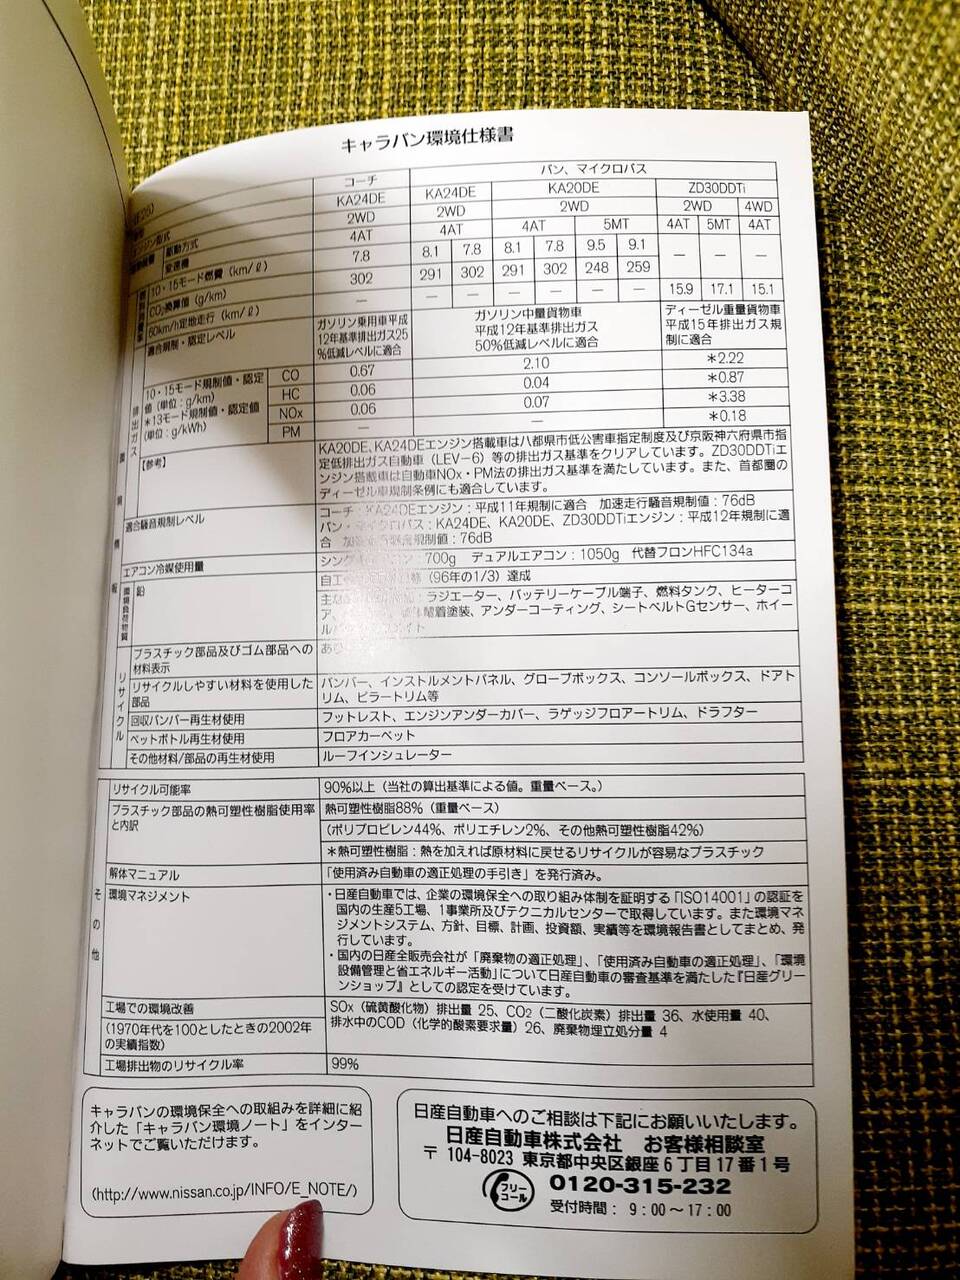 キャラバン環境仕様書
コーチ
バン、マイクロバス
エンジン型式
KA24DE
KA24DE
KA20DE
ZD30DDTi
駆動方式
2WD
2WD
2WD
2WD
4WD
変速機
4AT
4AT
4AT
5MT
4AT
5MT
4AT
10・15モード燃費(km/ℓ)
7.8
8.1
7.8
8.1
7.8
9.5
9.1
—
—
—
CO₂換算値(g/km)
302
291
302
291
302
248
259
60km/h定地走行(km/ℓ)
—
—
—
—
—
—
—
15.9
17.1
15.1
適合規制・認定レベル
ガソリン乗用車平成
12年基準排出ガス25
%低減レベルに適合
ガソリン中量貨物車
平成12年基準排出ガス
50%低減レベルに適合
ディーゼル重量貨物車
平成15年排出ガス規
制に適合
排出ガス
10・15モード規制値・認定
値(単位:g/km)
*13モード規制値・認定値
(単位:g/kWh)
CO
0.67
2.10
*2.22
HC
0.06
0.04
*0.87
NOx
0.06
0.07
*3.38
PM
—
—
*0.18
【参考】
KA20DE、KA24DEエンジン搭載車は八都県市低公害車指定制度及び京阪神六府県市指
定低排出ガス自動車(LEV-6)等の排出ガス基準をクリアしています。ZD30DDTiエ
ンジン搭載車は自動車NOx・PM法の排出ガス基準を満たしています。また、首都圏の
ディーゼル車規制条例にも適合しています。
環境情報
適合騒音規制レベル
コーチ:KA24DEエンジン:平成11年規制に適合 加速走行騒音規制値:76dB
バン・マイクロバス:KA24DE、KA20DE、ZD30DDTiエンジン:平成12年規制に適
合 加速走行騒音規制値:76dB
エアコン冷媒使用量
700g デュアルエアコン:1050g 代替フロンHFC134a
環境負荷物質
鉛
(96年の1/3)達成
ラジエーター、バッテリーケーブル端子、燃料タンク、ヒーターコ
ア、
電着塗装、アンダーコーティング、シートベルトGセンサー、ホイー
ル
リサイクル
プラスチック部品及びゴム部品への
材料表示
あり
リサイクルしやすい材料を使用した
部品
バンパー、インストルメントパネル、グローブボックス、コンソールボックス、ドアト
リム、ピラートリム等
回収バンパー再生材使用
フットレスト、エンジンアンダーカバー、ラゲッジフロアートリム、ドラフター
ペットボトル再生材使用
フロアカーペット
その他材料/部品の再生材使用
ルーフインシュレーター
その他
リサイクル可能率
90%以上(当社の算出基準による値。重量ベース。)
プラスチック部品の熱可塑性樹脂使用率
と内訳
熱可塑性樹脂88%(重量ベース)
(ポリプロピレン44%、ポリエチレン2%、その他熱可塑性樹脂42%)
*熱可塑性樹脂:熱を加えれば原材料に戻せるリサイクルが容易なプラスチック
解体マニュアル
「使用済み自動車の適正処理の手引き」を発行済み。
環境マネジメント
・日産自動車では、企業の環境保全への取り組み体制を証明する「ISO14001」の認証を
国内の生産5工場、1事業所及びテクニカルセンターで取得しています。また環境マネ
ジメントシステム、方針、目標、計画、投資額、実績等を環境報告書としてまとめ、発
行しています。
・国内の日産全販売会社が「廃棄物の適正処理」、「使用済み自動車の適正処理」、「環境
設備管理と省エネルギー活動」について日産自動車の審査基準を満たした『日産グリー
ンショップ』としての認定を受けています。
工場での環境改善
(1970年代を100としたときの2002年
の実績指数)
SOx(硫黄酸化物)排出量 25、CO₂(二酸化炭素)排出量 36、水使用量 40、
排水中のCOD(化学的酸素要求量)26、廃棄物埋立処分量 4
工場排出物のリサイクル率
99%
キャラバンの環境保全への取組みを詳細に紹
介した「キャラバン環境ノート」をインター
ネットでご覧いただけます。
(http://www.nissan.co.jp/INFO/E_NOTE/)
日産自動車へのご相談は下記にお願いいたします。
日産自動車株式会社 お客様相談室
〒104-8023 東京都中央区銀座6丁目17番1号
フリーコール
0120-315-232
受付時間:9:00〜17:00